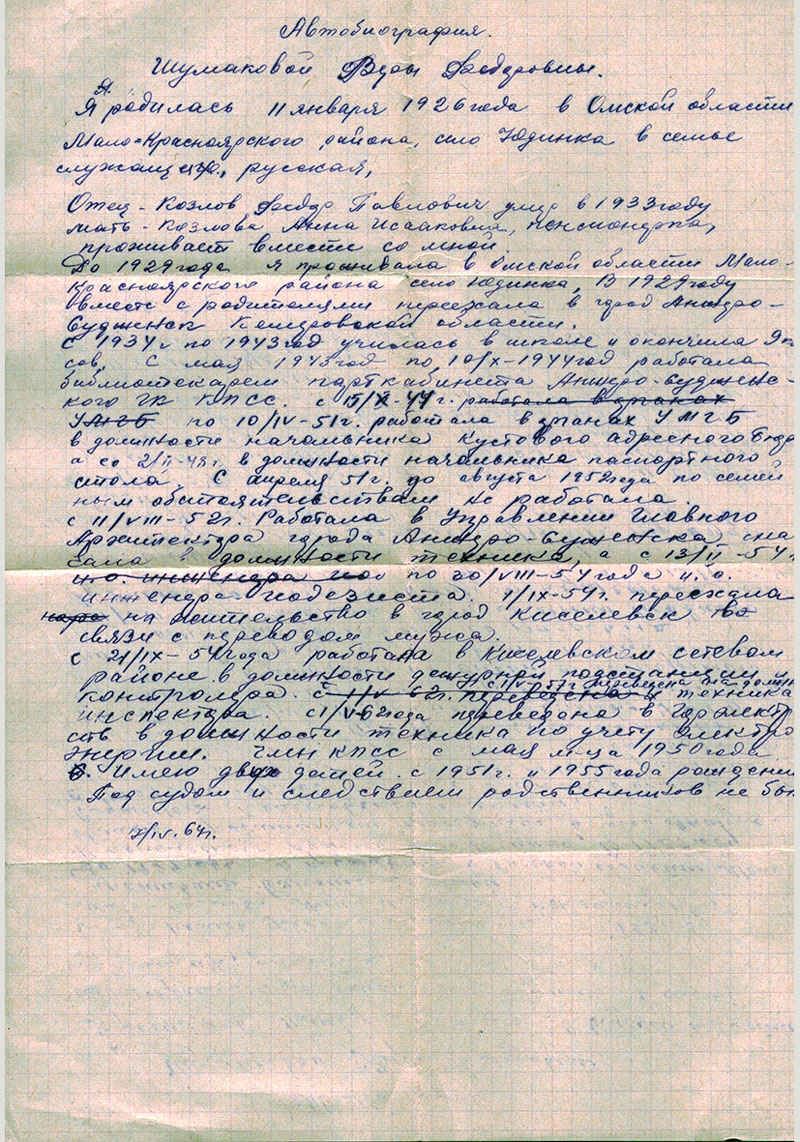 Автобиография.
Шумаковой Веры Федоровны.
Я
Я родилась 11 января 1926 года в Омской области
Мало-Красноярского района, село Юдинка в семье
служащего, русская,
Отец - Козлов Федор Павлович умер в 1933 году
мать - Козлова Анна Исааковна, пенсионерка,
проживает вместе со мной.
До 1929 года я проживала в Омской области Мало-
Красноярского района село Юдинка, В 1929 году
вместе с родителями переехала в город Анжеро-
Судженск Кемеровской области.
С 1934 г по 1943 год училась в школе и окончила 9 кл
сов. С мая 1943 год по 10/X-1944 год работала
библиотекарем парткабинета Анжеро-Судженс-
кого ГК КПСС. с 15/X-44 г. работала в органах
УМГБ по 10/IV-51 г. работала в органах УМГБ
в должности начальника Кустового адресного Бюро
а со 2/II-48 г. в должности начальника паспортного
стола. С апреля 51 г. до августа 1952 года по семей
ным обстоятельствам не работала.
с 11/VIII-52 г. Работала в Управлении Главного
Архитектора города Анжеро-Судженска сна
чала в должности техника, а с 13/II-54 г
и.о. инженера по 20/VIII-54 года и.о.
инженера геодезиста. 1/IX-54 г. переехала
на жительство в город Киселевск в
связи с переводом мужа.
с 21/IX-54 года работала в Киселевском сетевом
районе в должности дежурной подстанции
контролера. с 1/V 62 г. переведена техника
инспектора. с 1/V-62 года переведена в Горэлектр
сеть в должности техника по учету электро
энергии. Член КПСС с мая м-ца 1950 года
Имею двух детей. с 1951 г. и 1955 года рождения
Под судом и следствием родственников не был
IV. 64 г.